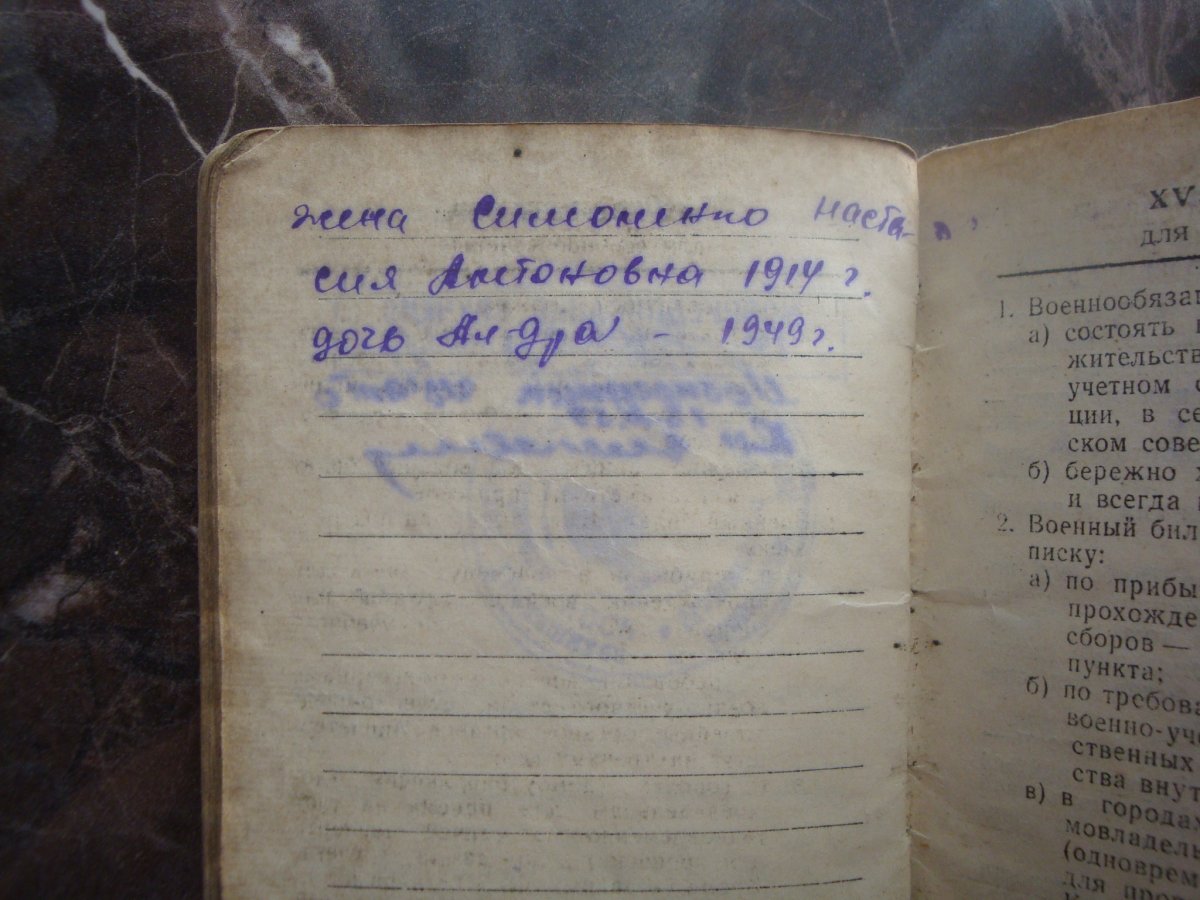 жена Симоненко Наста-
сия Антоновна 1914 г.
дочь Ал-дра - 1949 г.
XV
для
1. Военнообязан
а) состоять
жительств
учетном
ции, в се
ском сове
б) бережно
и всегда
2. Военный бил
писку:
а) по прибы
прохожде
сборов —
пункта;
б) по требова
военно-уч
ственных
ства внут
в) в города
мовладель
(одноврем
для про